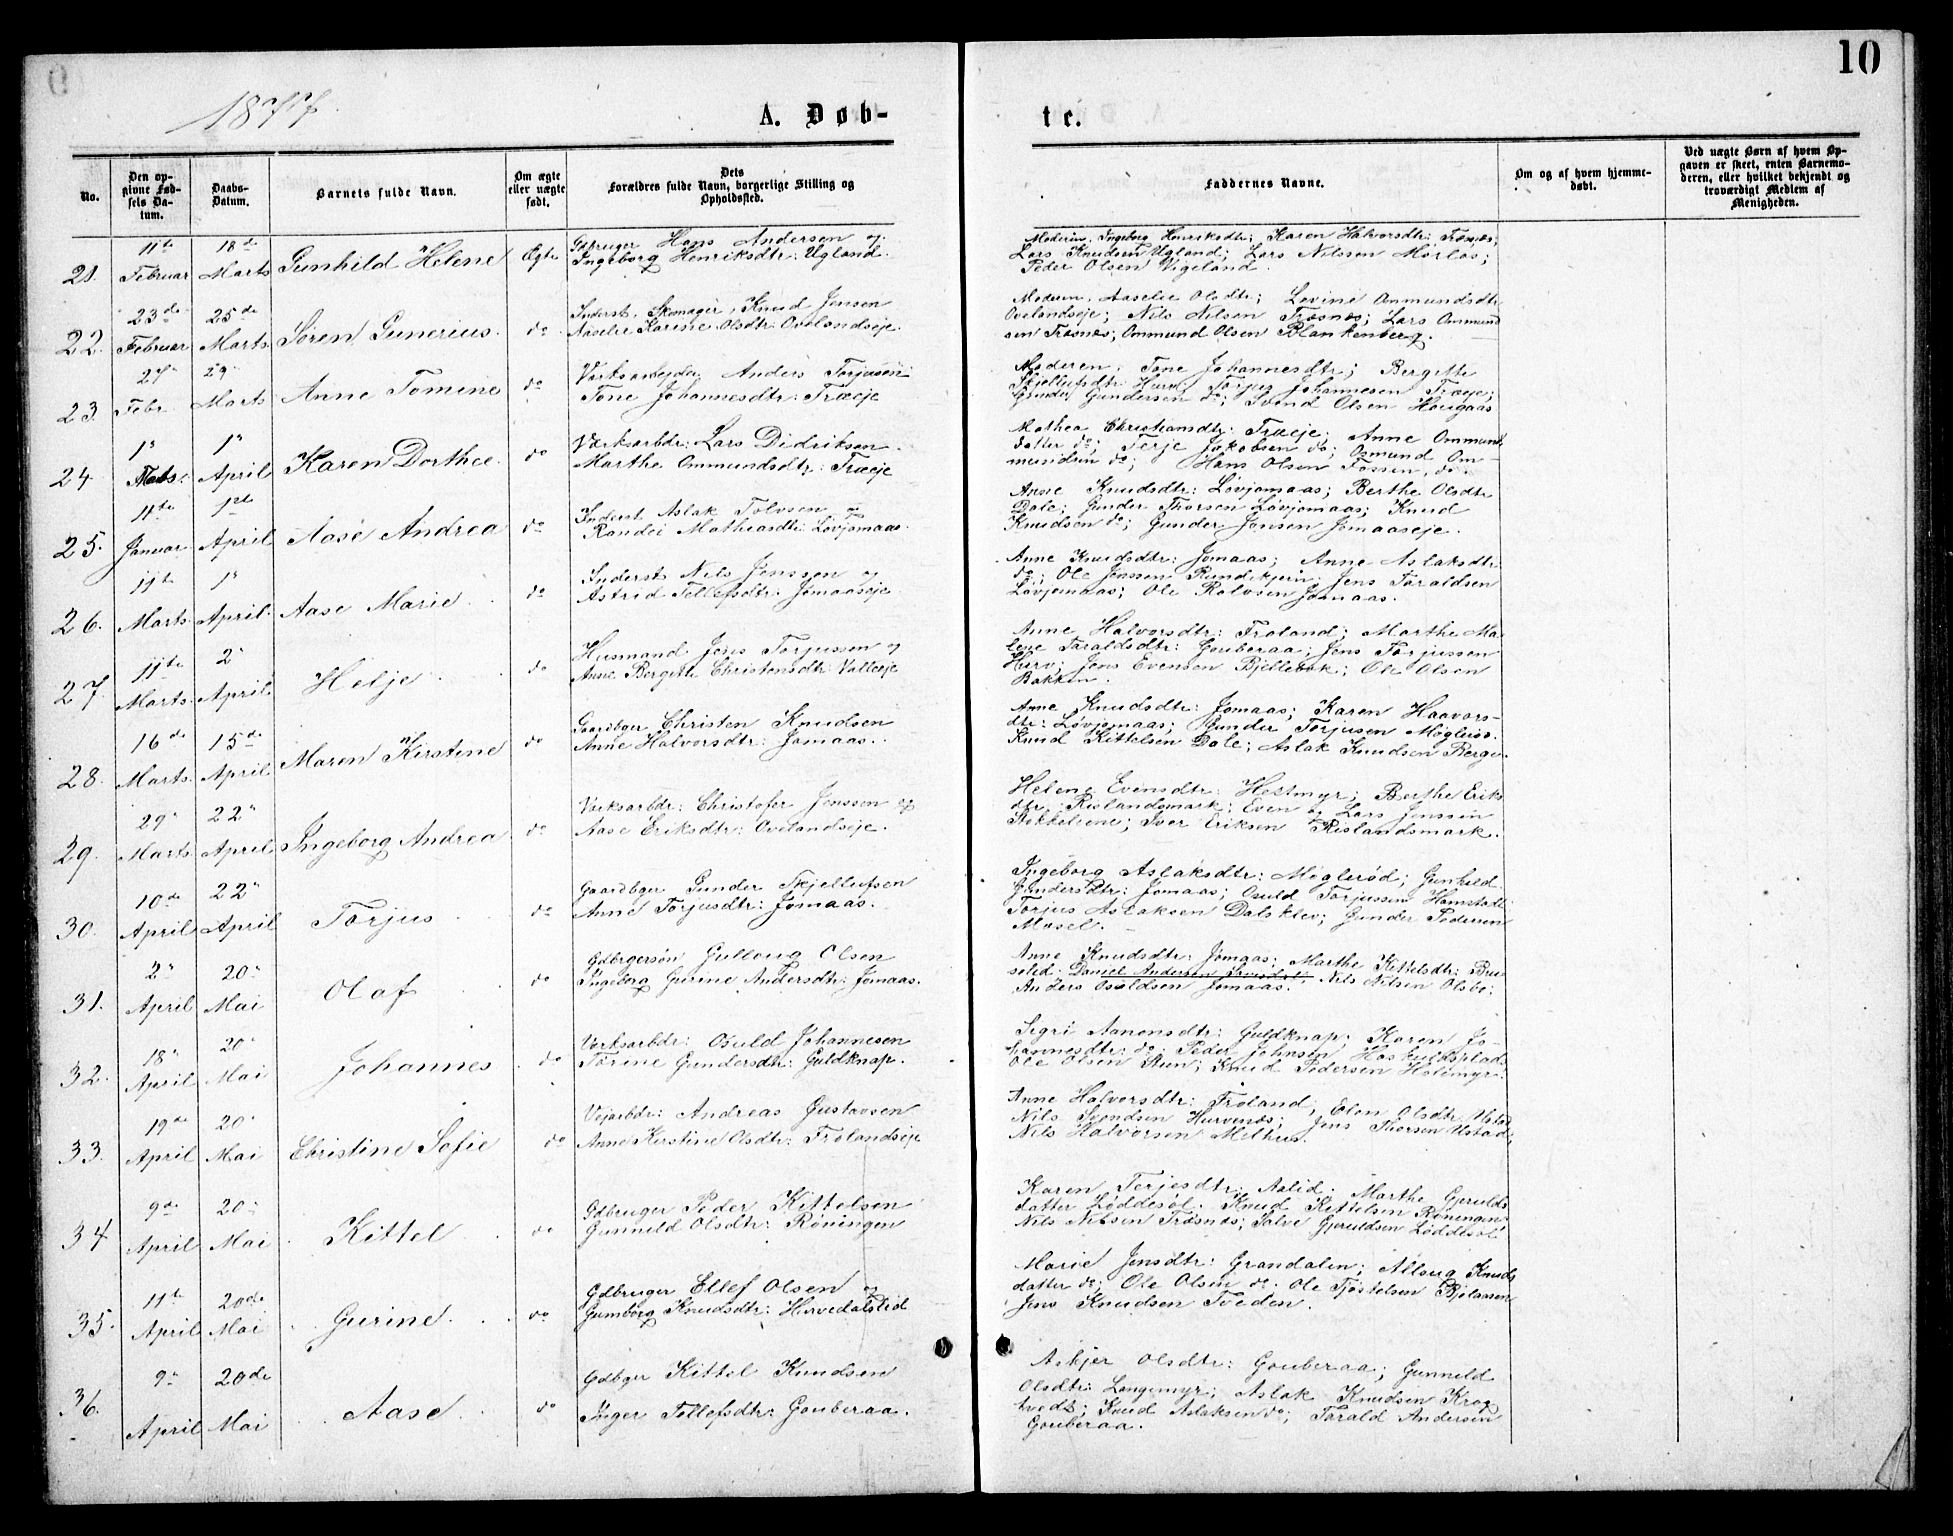 10
1877.
A. Døb-
te.
No.
Den op-
givne Fød-
sels Da-
tum.
Daabs-
Datum.
Barnets fulde Navn.
Om ægte
eller uægte
født.
Dets
Forældres fulde Navn, borgerlige Stilling og
Opholdssted.
Faddernes Navne.
Om og af hvem hjemme-
døbt.
Ved uægte Børn af hvem Op-
gaven er skeet, enten Barnemo-
deren, eller hvilket bekjendt og
troværdigt Medlem af
Menigheden.
21.
11te
Februar
18de
Marts
Gunhild Helene
Ægte
Gdbruger Hans Andersen og
Ingeborg Henriksdtr: Ugland.
Moderen, Ingeborg Henriksdtr; Karen Halvorsdtr: Træsnæs;
Lars Knudsen Ugland; Lars Nilssen Mørlas;
Peder Olsen Vigeland.
22.
23de
Februar
25de
Marts
Søren Gunerius.
do
Inderst, Skomager, Knud Jensen
Aaselie Karine Olsdtr: Ovelandseje.
Moderen, Aaselie Olsdtr; Lovine Ommundsdtr
Ovelandseje; Nils Nilsen Træsnæs; Lars Ommund
sen Træsnæs; Ommund Olsen Blankenberg.
23.
27"
Febr.
29"
Marts
Anne Tomine
do
Værksarbejder Anders Torjusen
Tone Johannesdtr: Træeje
Moderen, Tone Johannesdtr; Bergitte
Skjellufsdtr: Hurv; Torjus Johannesen Træeje;
Gunder Gundersen do; Svend Olsen Hougaas
24.
1"
Marts.
1"
April
Karen Dorthee.
do
Værksarbdr: Lars Didriksen
Marthe Ommundsdtr: Træeje
Mathea Christiansdtr: Træeje; Anne Ommunds
datter do; Terje Jakobsen do; Osmund Om-
mundsen do; Hans Olsen Fossen, do.
25.
11te
Januar
1ste
April
Aase Andrea
do
Inderst Aslak Tolvsen og
Randei Mathiasdtr: Løvjomaas.
Anne Knudsdtr: Løvjomaas; Berthe Olsdtr
Dale; Gunder Thorsen Løvjomaas; Knud
Knudsen do; Gunder Jensen Jomaaseje.
26.
11te
Marts
1"
April.
Aase Marie
do
Inderst Nils Jenssen og
Astrid Tellefsdtr: Jomaaseje
Anne Knudsdtr: Jomaas; Anne Aslaksdtr:
do; Ole Jenssen Rundekjern; Jens Taraldsen
Løvjomaas; Ole Rolvsen Jomaas.
27.
11te
Marts
2"
April
Helje
do
Husmand Jens Torjussen og
Anne Bergitte Christensdtr: Valleeje
Anne Halvorsdtr: Froland; Marthe Ma
lene Taraldsdtr: Gouberaa; Jens Torjussen
Hurv; Jens Evensen Bjellebek; Ole Olsen
Bakken.
28.
16de
Marts
15de
April
Maren Kirstine
do
Gaardbger Christen Knudsen
Anne Halvorsdtr: Jomaas.
Anne Knudsdtr: Jomaas; Karen Haavors-
dtr: Løvjomaas; Gunder Torjusen
Knud Kittelsen Dale; Aslak Knudsen Berge.
29.
29"
Marts
22"
April
Ingeborg Andrea
do
Værksarbdr: Christofer Jenssen og
Aase Eriksdtr: Ovelandseje.
Helene Evensdtr: Hestmyr; Berthe Eriks
dtr: Rislandsmark; Even og Lars Jenssen
Stokkeliene; Iver Eriksen Rislandsmark.
30.
10de
April
22"
April
Torjus
do
Gaardbger Gunder Skjellufsen
Anne Torjusdtr: Jomaas.
Ingeborg Aslaksdtr: Møglerød; Gunhild
Gundersdtr: Jomaas; Osuld Torjussen Hamstad;
Torjus Aslaksen Dalsklev; Gunder Pedersen
Mosel.
31.
2"
April
20"
Mai
Olaf
do
Gdbrgersøn Gulloug Olsen
Ingeborg Gurine Andersdtr: Jomaas.
Anne Knudsdtr: Jomaas; Marthe Kittelsdtr: Bru
soled. Daniel Andersen Nils Nilsen Olsbo.
Anders Osuldsen Jomaas.
32.
18"
April
20"
Mai
Johannes
do
Værksarbdr: Osuld Johannesen
Torine Gundersdtr: Guldknap.
Sigri Aanonsdtr: Guldknap; Karen Jo-
hannesdtr: do. Peder Johnsen Haskuldsplads
Ole Olsen Stun; Knud Pedersen Holtmyr.
33.
19de
April
20"
Mai
Christine Sofie
do
Vejarbdr: Andreas Gustavsen
Anne Kirstine Olsdtr: Frolandseje
Anne Halvorsdtr: Froland; Elen Olsdtr Ustad
Nils Svendsen Hurvenæs; Jens Thorsen Ustad;
Nils Halvorsen Melhus.
34
9de
April
20"
Mai
Kittel
do
Gdbruger Peder Kittelsen
Gunneld Olsdtr: Røningen
Karen Terjesdtr: Aslid; Marthe Gjerulds
datter Løddesøl. Knud Kittelsen Røningen
Nils Nilsen Træsnæs; Salve Gjeruldsen Løddesøl.
35.
11te
April
20de
Mai
Gurine
do
Gdbruger Ellef Olsen og
Gumborg Knudsdtr: Hurvedalslid
Marie Jensdtr: Grandalen; Alloug Knuds
datter do; Ole Olsen do. Ole Tjøstelsen Bjelaasen
Jens Knudsen Tveden.
36.
9"
April
20de
Mai
Aase
do
Gdbger Kittel Knudsen
Inger Tellefsdtr: Gouberaa.
Askjer Olsdtr: Gouberaa; Gunneld
Olsdtr: Langemyr; Aslak Knudsen Krog
tvedt; Knud Aslaksen do; Tarald Andersen
Gouberaa.